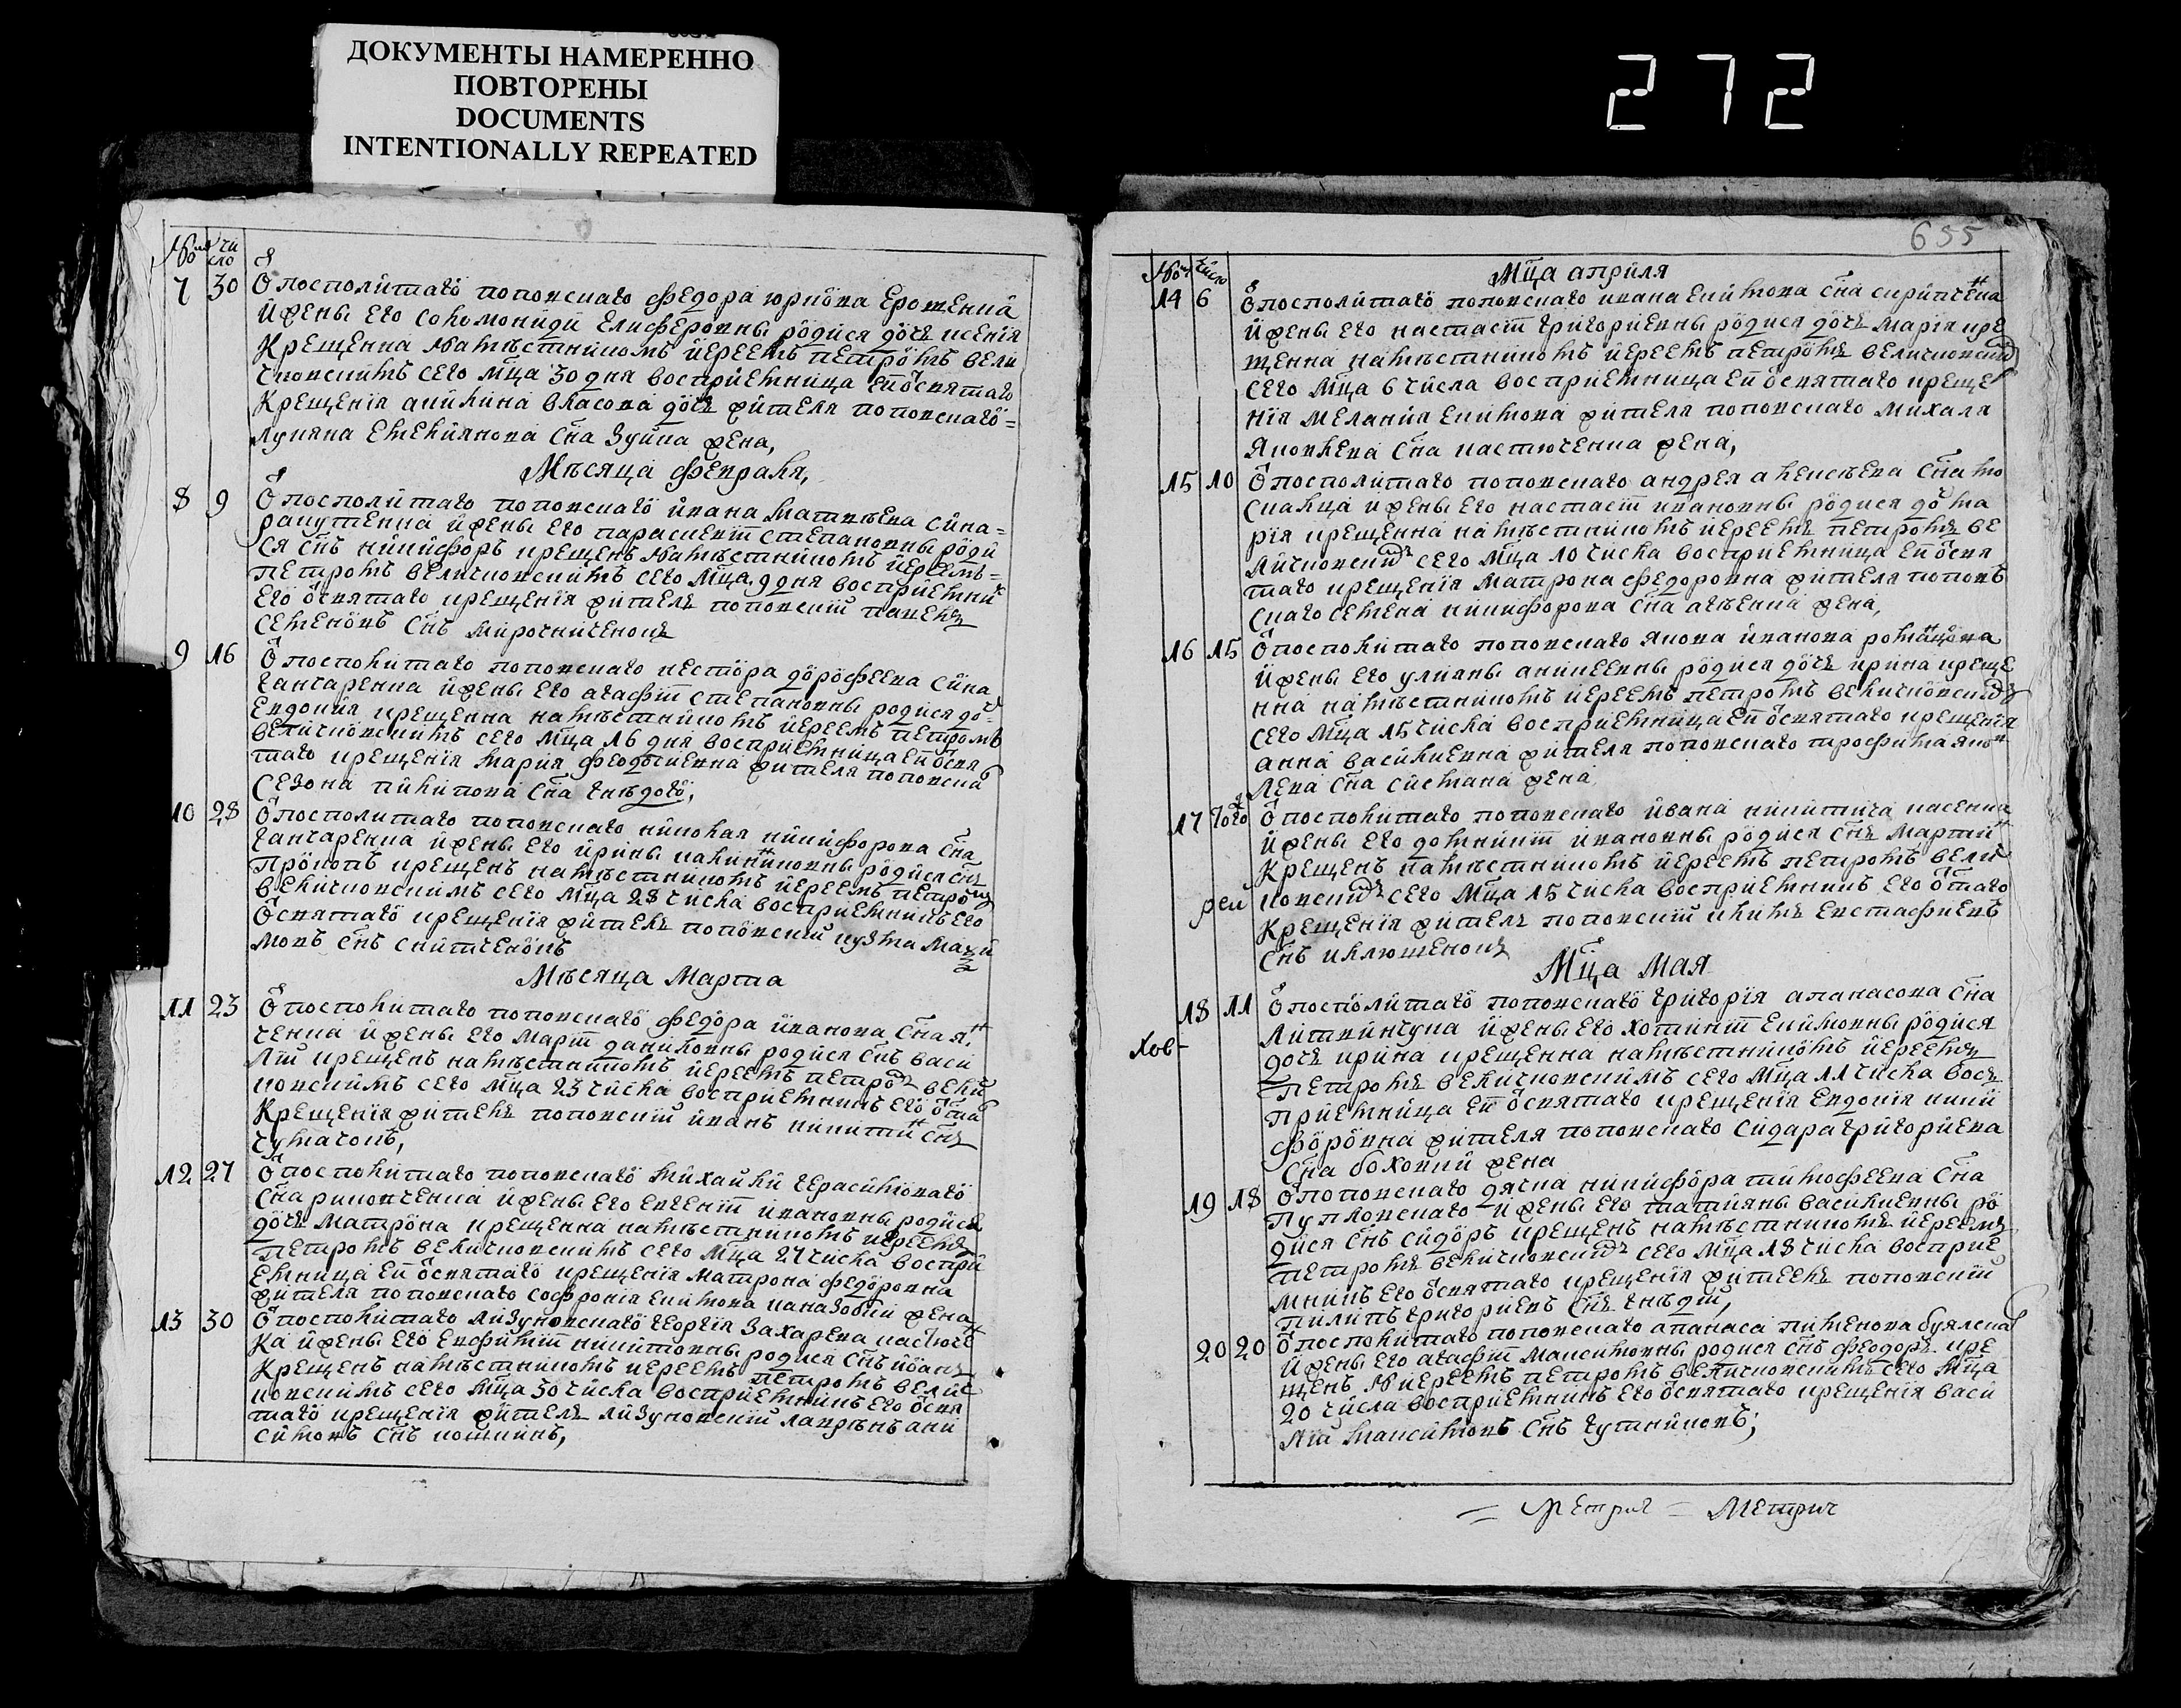 ДОКУМЕНТЫ НАМЕРЕННО
ПОВТОРЕНЫ
DOCUMENTS
INTENTIONALLY REPEATED
272
чи
сло
7 30 У посполитаго поповскаго федора юриова Ерошенка
и жены его соломониди Елисферовны родися дочь ксения
Крещенна Намѣстникомъ иереемъ петромъ вели
чковскимъ сего мца 30 дня восприемница еи ѿ святаго
Крещения акилина власова дочь жителя поповскаго
лукяна Емелиянова сна Зуйка жена,
Мѣсяца февраля,
8 9 У посполитаго поповскаго ивана матвѣева сина
и жены его параскевии степановны роди
ся снъ никифоръ крещенъ намѣстникомъ иереемъ
петромъ величковскимъ сего мца 9 дня восприемник
его ѿ святаго крещения житель поповский павелъ
семеновъ снъ мирочниченокъ
9 16 У посполитаго поповскаго нестора дорофеева сина
ганчаренка и жены его агафии степановны родися до
Евдокия крещенна намѣстникомъ иереемъ петромъ
величковскимъ сего мца 16 дня восприемница еи ѿ свя
таго крещения мария феодосиевна жителя поповска
Созона пилипова сна гнѣдого,
10 28 У посполитаго поповскаго николая никифорова сна
ганчаренка и жены его ирины калиниковны родися снъ
Прокопъ крещенъ намѣстникомъ иереемъ петромъ
величковскимъ сего мца 28 числа восприемникъ его
ѿ святаго крещения житель поповский кузма макси
мовъ снъ
Мѣсяца Марта
11 23 У посполитаго поповскаго федора иванова сна
и жены его марфи даниловны родися снъ васи
лий крещенъ намѣстникомъ иереемъ петром велич
ковскимъ сего мца 23 числа восприемникъ его ѿ свя
Крещения житель поповский иванъ никитин снъ
чумачокъ,
12 27 У посполитаго поповскаго михайли герасимоваго
сна и жены его евгении ивановны родися
дочь матрона крещенна намѣстникомъ иереемъ
петромъ величковскимъ сего мца 27 числа воспри
емница еи ѿ святаго крещения матрона федоровна
жителя поповскаго софрония Екимова жена
13 30 У посполитаго лизуновскаго георгия захарева
и жены его евфимии никитовны родися снъ иванъ
Крещенъ намѣстникомъ иереемъ петромъ велич
ковскимъ сего мца 30 числа восприемникъ его ѿ свя
таго крещения житель лизуновский лаврѣнъ ани
симовъ снъ кошикъ,
655
число
Мца априля
14 6 У посполитаго поповскаго ивана Екимова сна
и жены его настасии григориевны родися дочь мария кре
щенна намѣстникомъ иереемъ петромъ величковским
сего мца 6 числа восприемница еи ѿ святаго креще
ния мелания Екимова жителя поповскаго михаля
Яковлева сна настюченка жена,
15 10 У посполитаго поповскаго андрея алексѣева сна мо
скалца и жены его настасии ивановны родися до ма
рия крещенна намѣстникомъ иереемъ петромъ ве
личковским сего мца 10 числа восприемница еи ѿ свя
таго крещения матрона федоровна жителя поповъ
скаго семена никифорова сна агѣенка жена,
16 15 У посполитаго поповскаго якова иванова
и жены его уляны аникеевны родися дочь ирина креще
нна намѣстникомъ иереемъ петромъ величковским
сего мца 15 числа восприемница еи ѿ святаго крещения
анна василиевна жителя поповскаго трофима яков
лева сна жена
17 Того У посполитаго поповскаго ивана никитича
и жены его домникии ивановны родися снъ мартин
Крещенъ намѣстникомъ иереемъ петромъ велич
ковским сего мца 15 числа восприемникъ его ѿ стаго
Крещения житель поповский илия евстафиевъ
снъ
рси
Мца мая
18 11 У посполитаго поповскаго григория апанасова сна
Литвинчука и жены его Екимовны родися
дочь ирина крещенна намѣстникомъ иереемъ
петромъ величковскимъ сего мца 11 числа вос
приемница еи ѿ святаго крещения евдокия ники
форовна жителя поповскаго сидара григориева
сна жена
хов
19 18 У поповскаго дяка никифора тимофеева сна
и жены его татияны василиевны ро
дися снъ сидоръ крещенъ намѣстникомъ иереемъ
петромъ величковским сего мца 18 числа восприе
мникъ его ѿ святаго крещения житель поповский
пилипъ григориевъ снъ гнѣдий,
20 20 У посполитаго поповскаго апанаса пименова
и жены его агафии максимовны родися снъ феодоръ кре
щенъ иереемъ петромъ величковскимъ сего мца
20 числа восприемникъ его ѿ святаго крещения васи
лий максимовъ снъ
= Метрич = Метрич